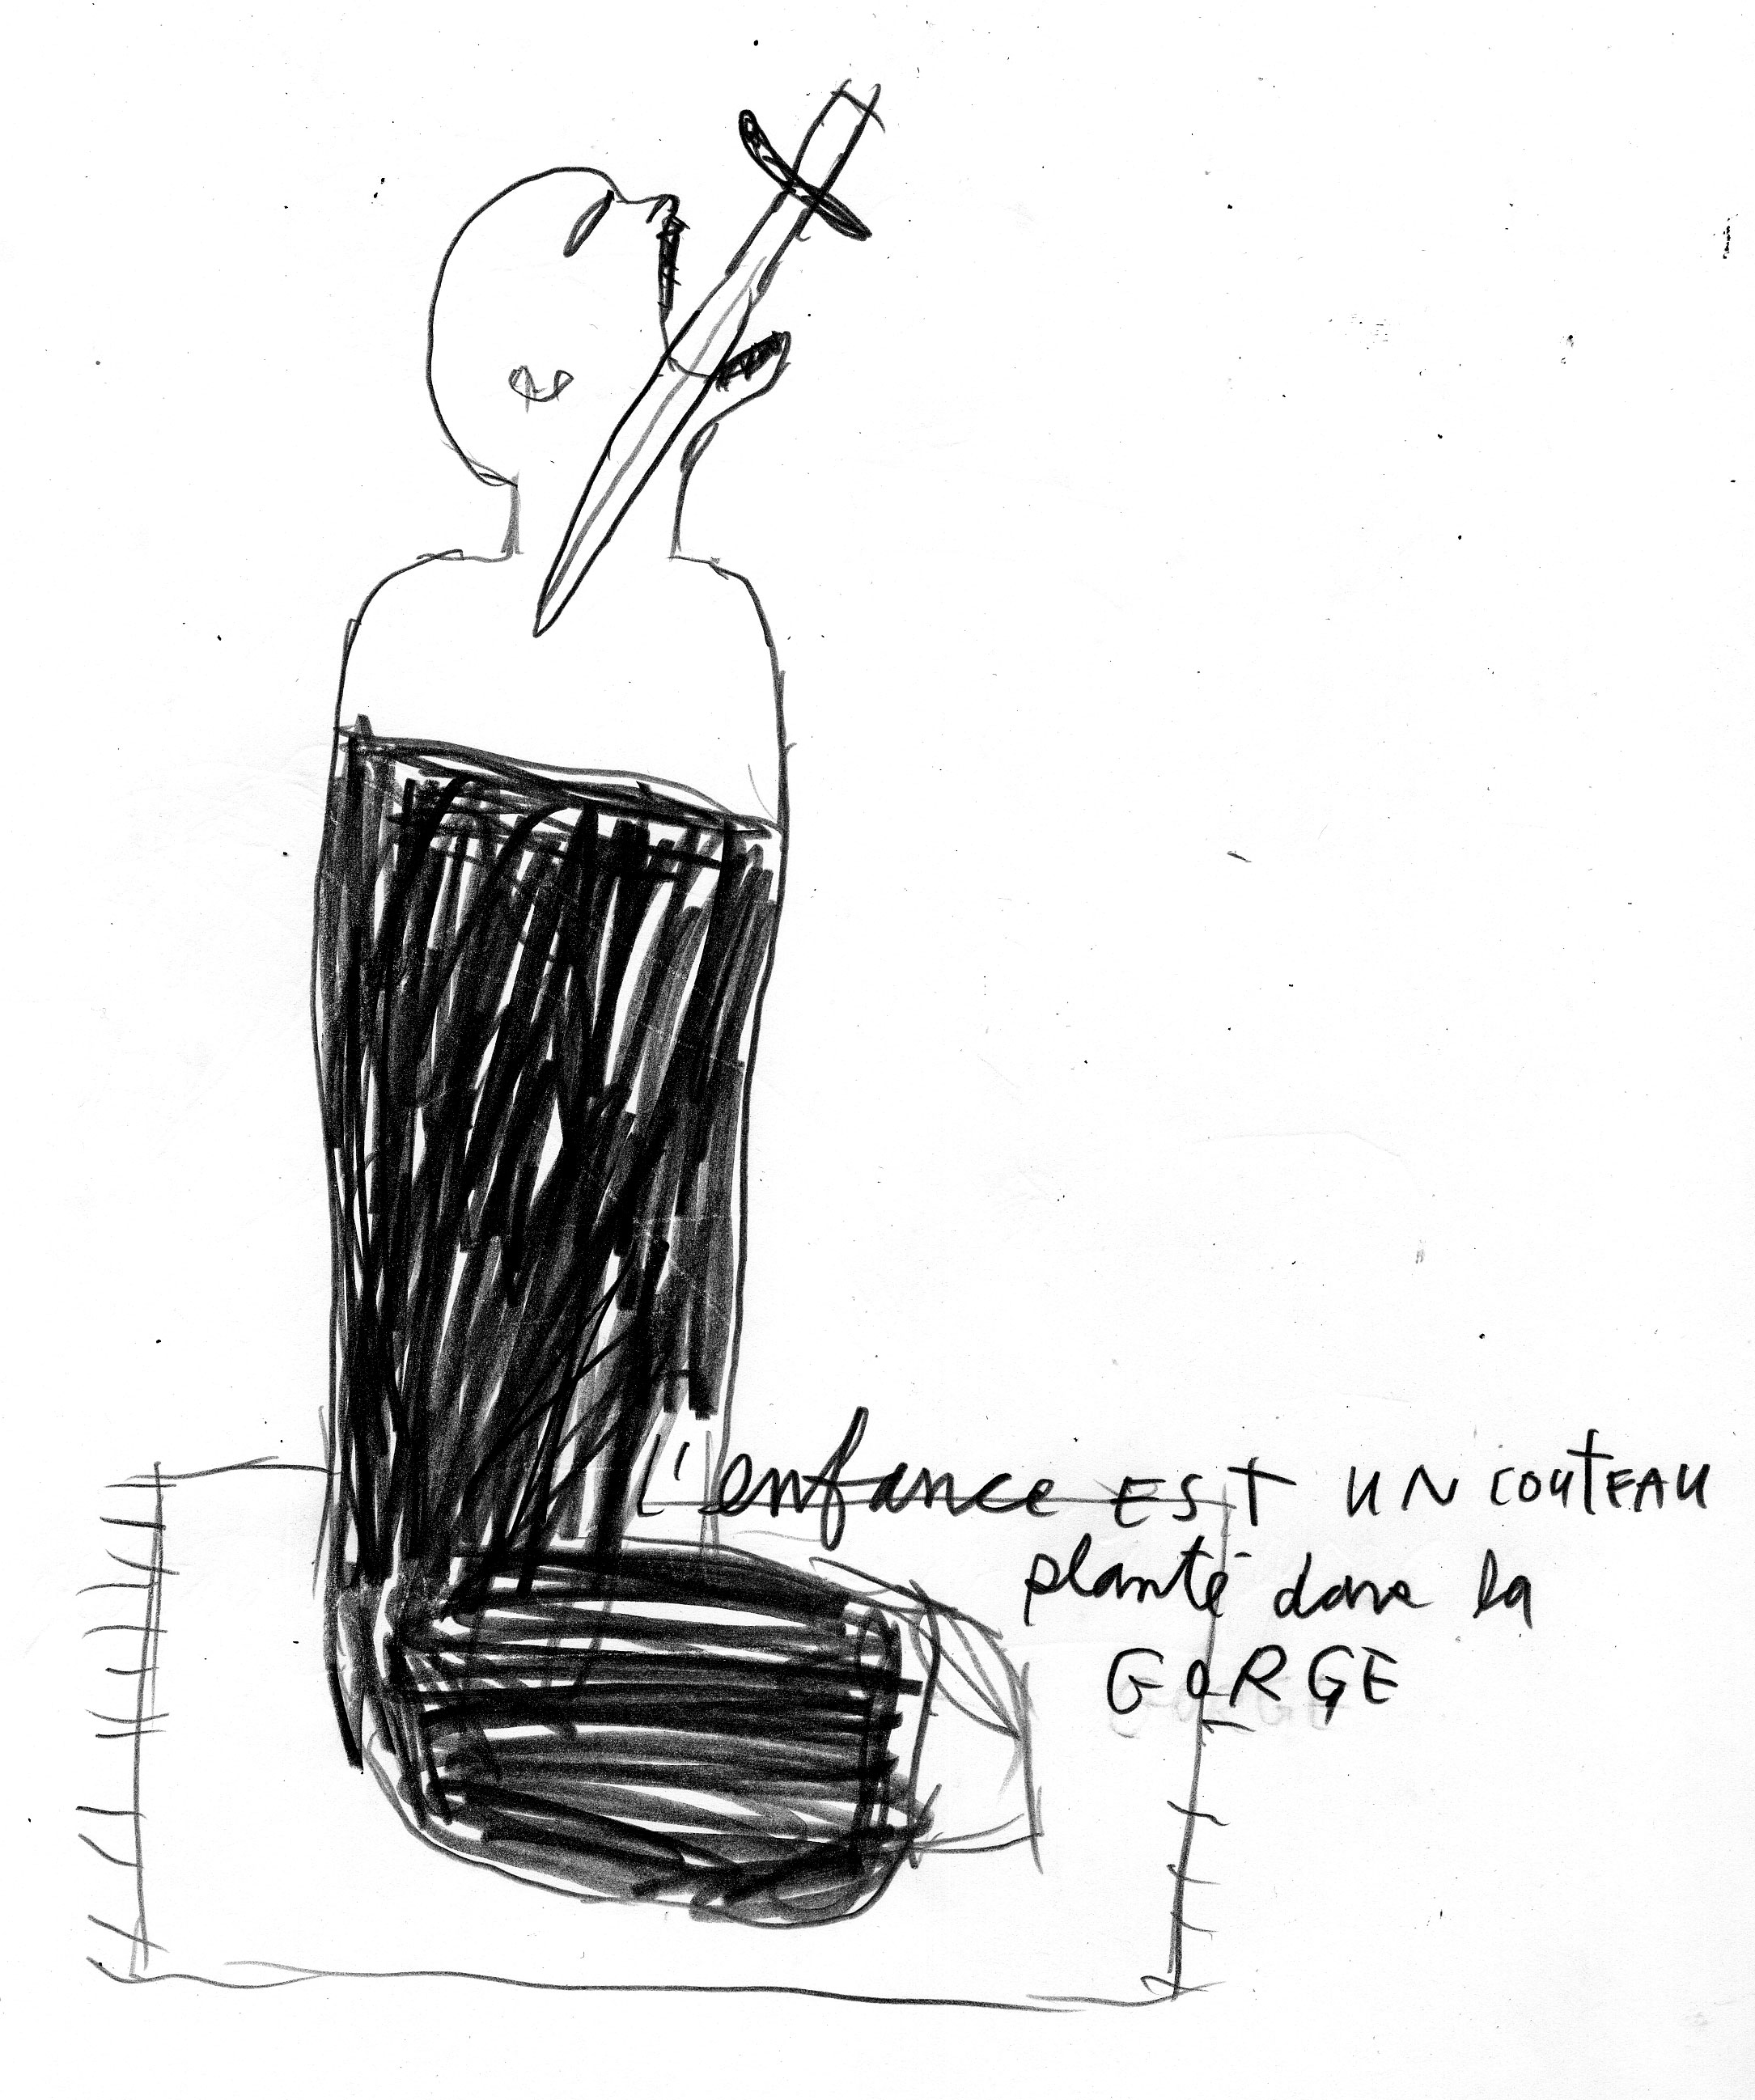 L'enfance EST UN COUTEAU
planté dans la
GORGE